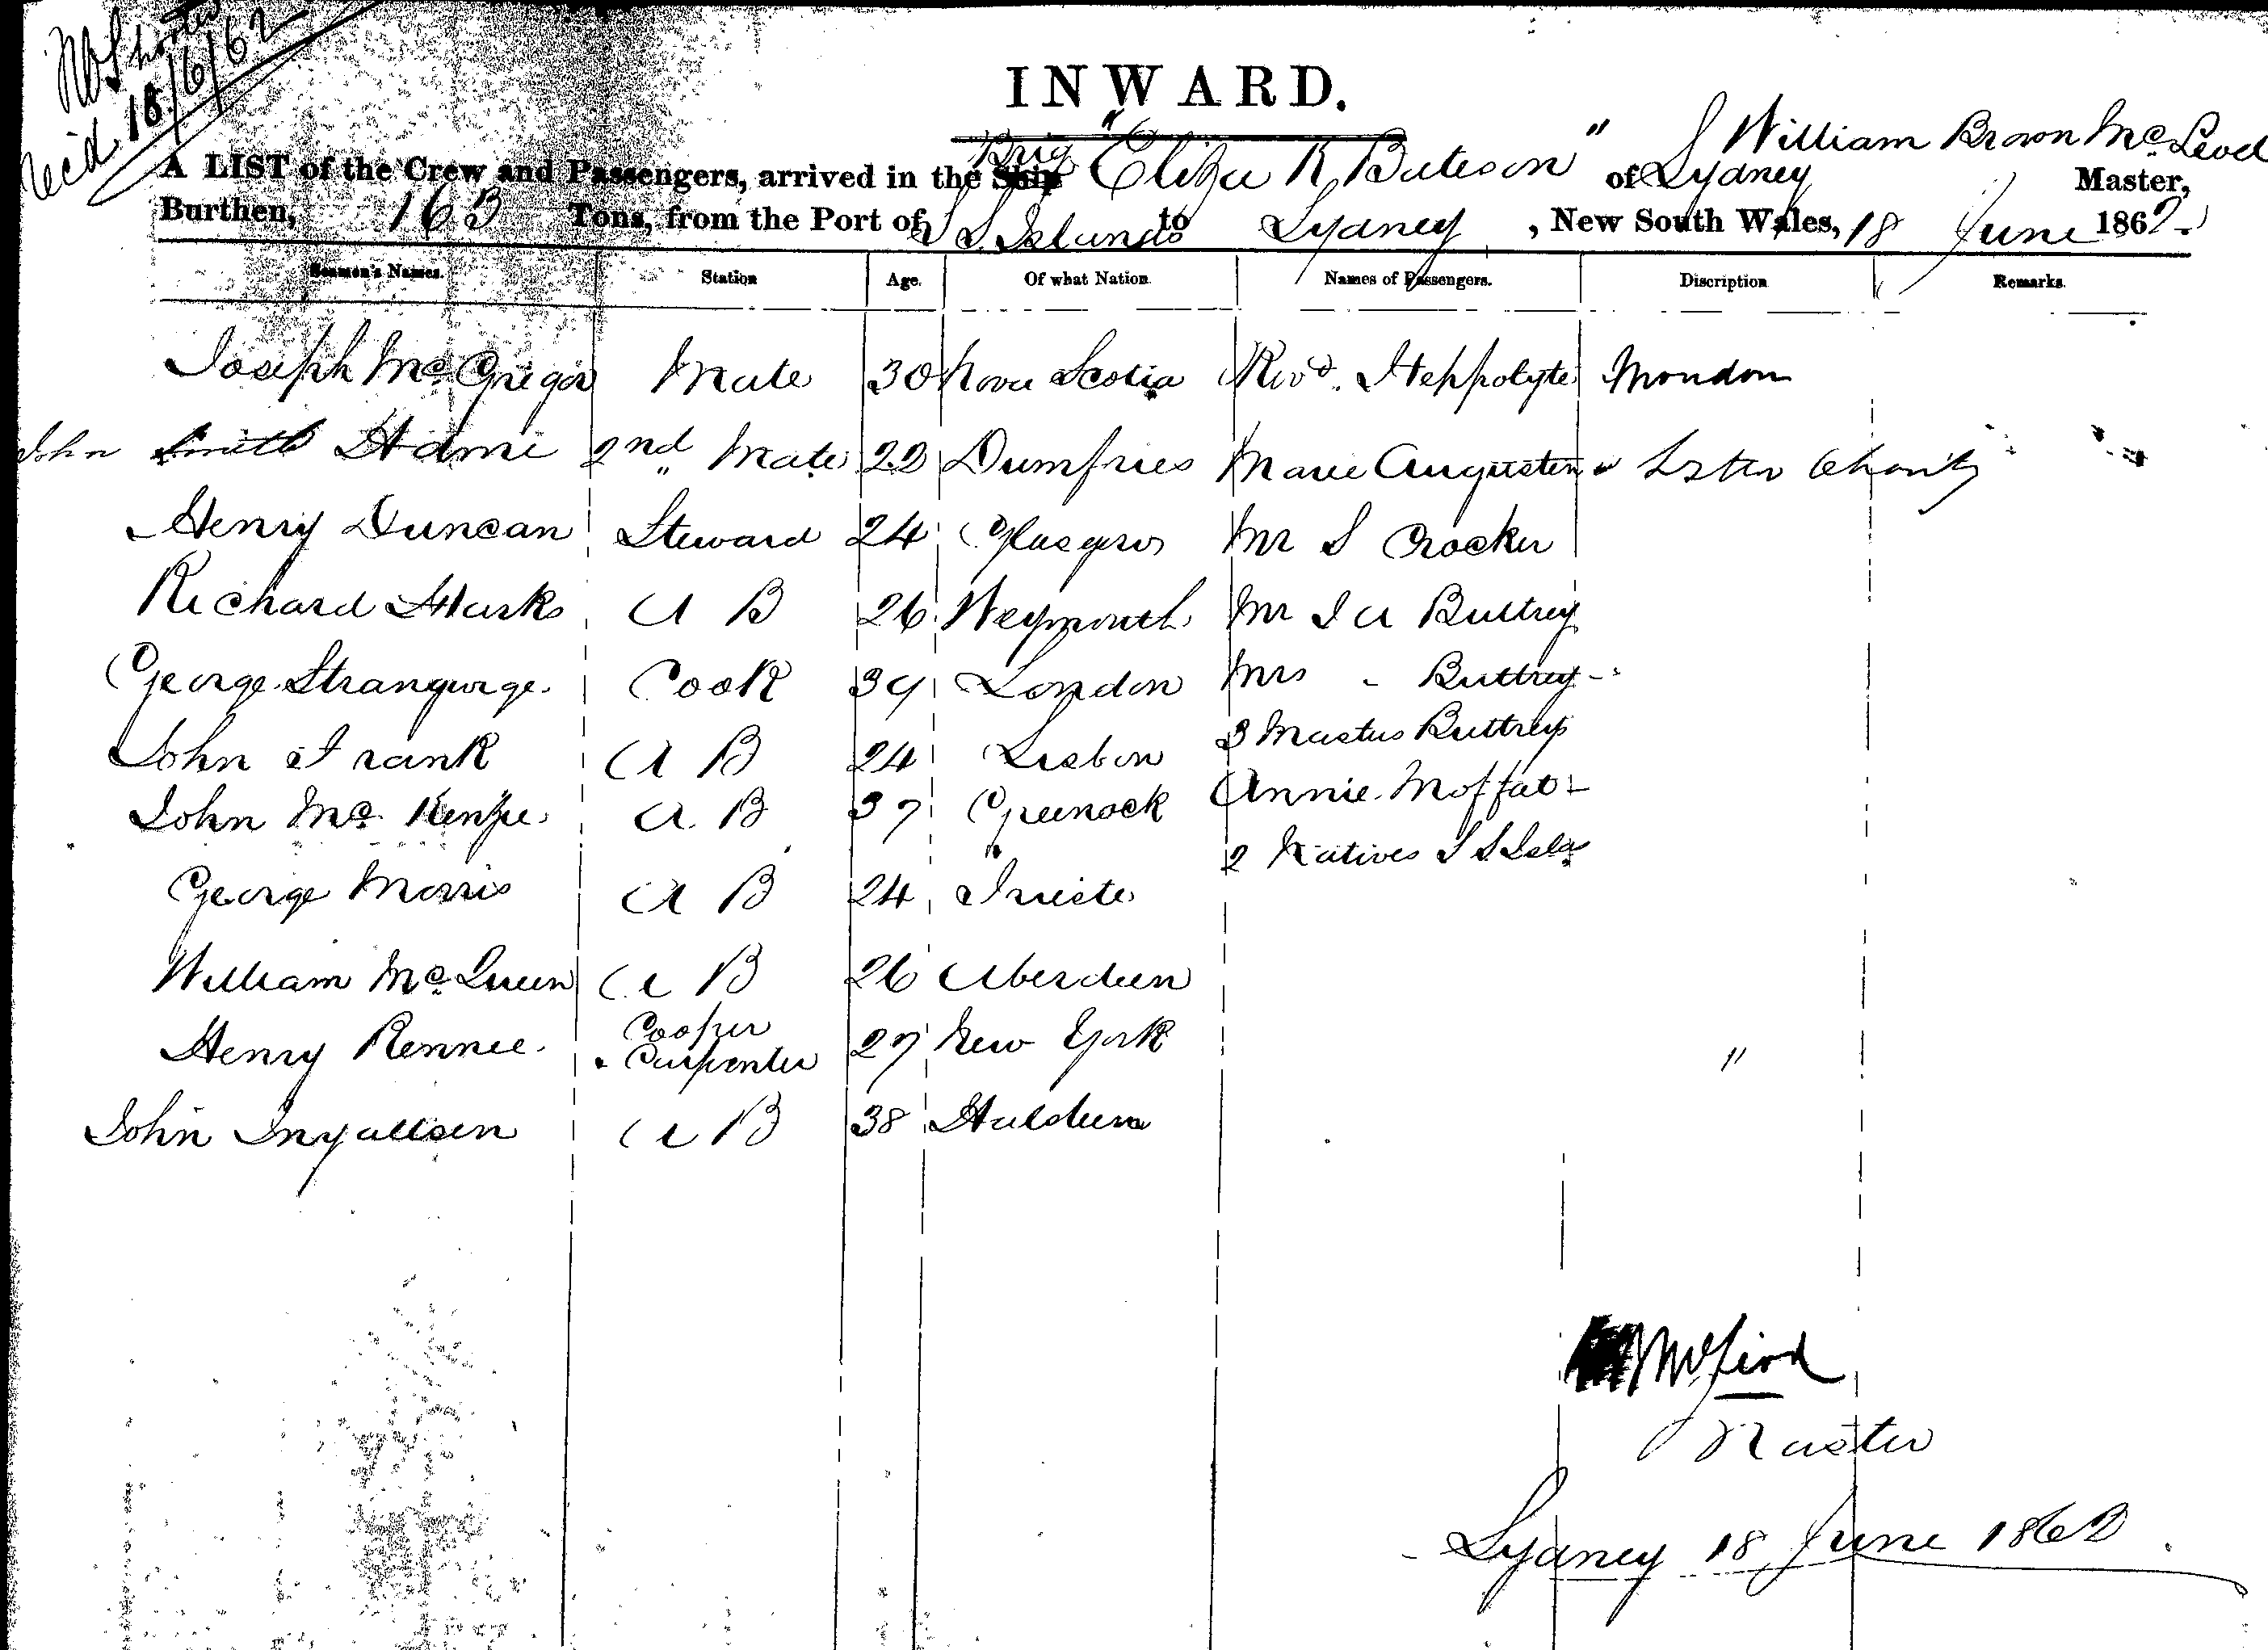 Recd. 18/6/62
INWARD.
Brig "Eliza K Bateson" William Brown McLeod
A LIST of the Crew and Passengers, arrived in the Ship of Sydney Master,
Burthen, 163 Tons, from the Port of S S Islands to Sydney, New South Wales, 18 June 1862.
Seamen's Names. Station Age. Of what Nation. Names of Passengers. Discription Remarks.
Joseph McGregor Mate 30 Nova Scotia Revd. Heppolyte Mondon
John Smith 2nd Mate 22 Dumfries Marie Charity
Henry Duncan Steward 24 Glasgow Mr S Crocker
Richard A B 26 Weymouth Mr Buttrey
George Cook 39 London Mrs - Buttrey -
John Frank A B 24 Lisbon 3 Masters Buttreys
John McKenzie A. B 37 Greenock Annie Moffat -
George Morris A B 24 Trieste 2 Natives S S Isla
William McQueen A B 26 Aberdeen
Henry Rennie. Cooper & Carpenter 27 New York "
John A B 38
McLeod
Master
Sydney 18 June 1862